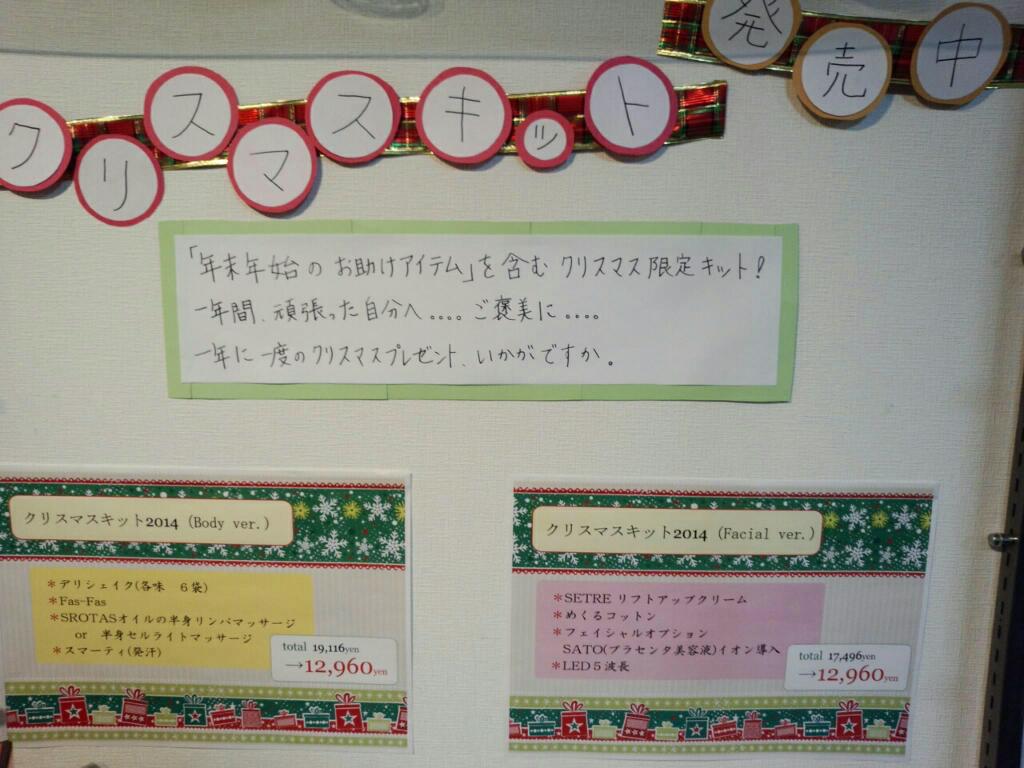 クリスマスキット
発売中
「年末年始の お助けアイテム」を含む クリスマス限定キット!
一年間、頑張った自分へ。。。。ご褒美に。。。。
一年に一度のクリスマスプレゼント、いかがですか。
クリスマスキット2014 (Body ver.)
*デリシェイク(各味 6袋)
*Fas-Fas
*SROTASオイルの半身リンパマッサージ
or 半身セルライトマッサージ
*スマーティ(発汗)
total 19,116yen
→12,960yen
クリスマスキット2014 (Facial ver.)
*SETRE リフトアップクリーム
*めぐるコットン
*フェイシャルオプション
SATO(プラセンタ美容液)イオン導入
*LED5波長
total 17,496yen
→12,960yen